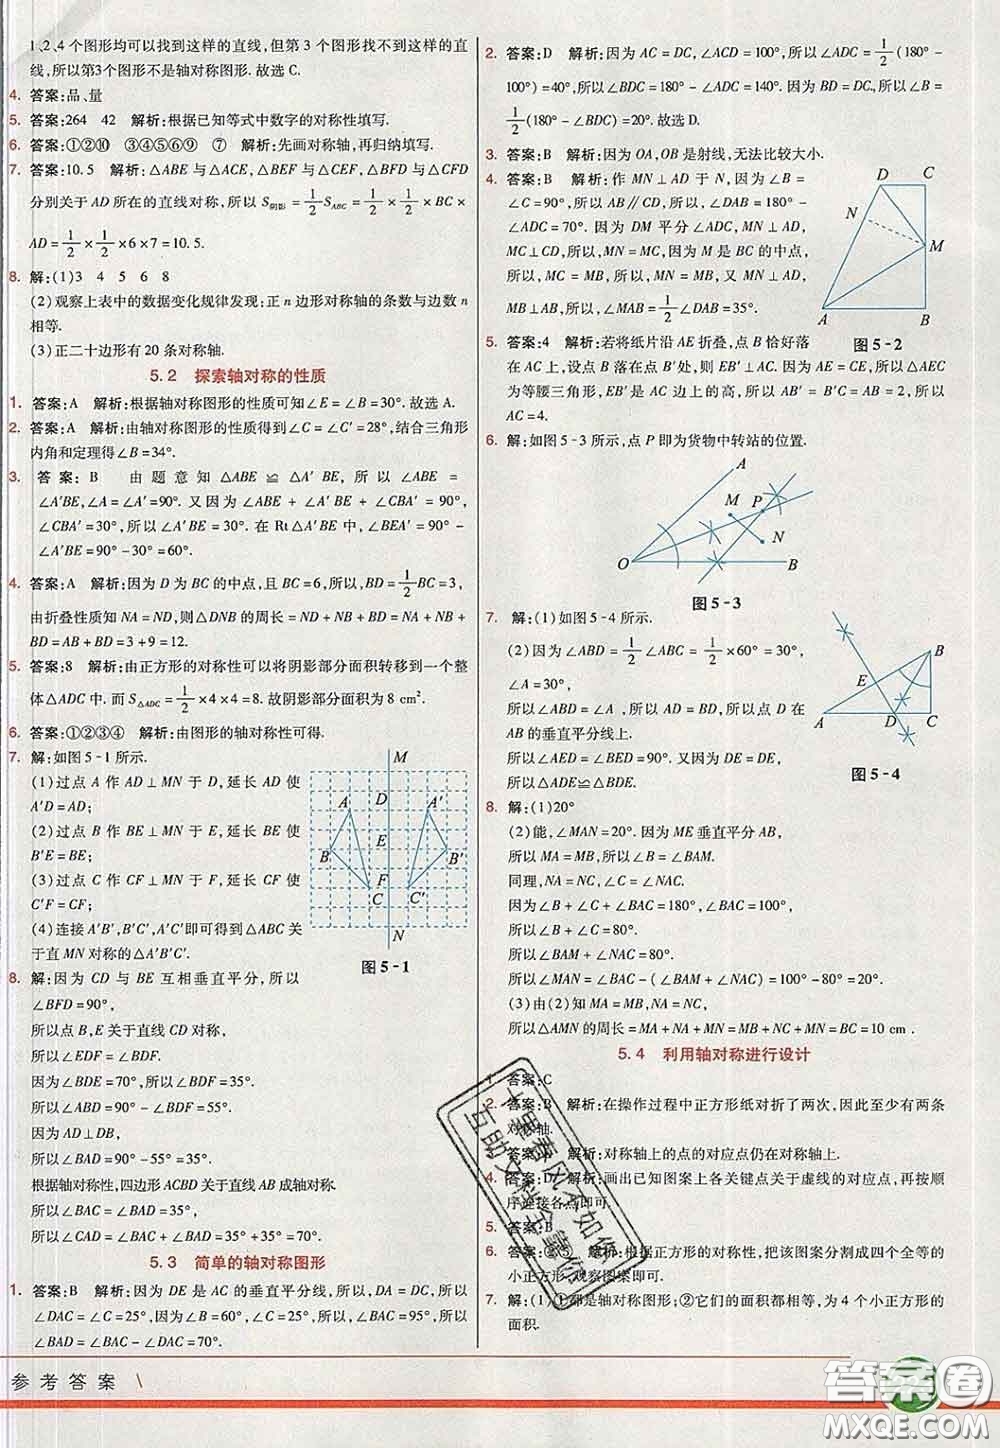 1、2、4 个图形均可以找到这样的直线,但第 3 个图形找不到这样的直
线,所以第3个图形不是轴对称图形. 故选 C.
4. 答案:品、量
5. 答案:264 42 解析:根据已知等式中数字的对称性填写.
6. 答案:①②⑩ ③④⑤⑥⑨ ⑦ 解析:先画对称轴,再归纳填写.
7. 答案:10.5 解析:△ABE 与△ACE,△BEF 与△CEF,△BFD 与△CFD
分别关于 AD 所在的直线对称,所以 S阴影=1/2 S△ABC=1/2×1/2×BC×
AD=1/2×1/2×6×7=10.5.
8. 解:(1)3 4 5 6 8
(2)观察上表中的数据变化规律发现:正 n 边形对称轴的条数与边数 n
相等.
(3)正二十边形有 20 条对称轴.
5.2 探索轴对称的性质
1. 答案:A 解析:根据轴对称图形的性质可知∠E=∠B=30°. 故选 A.
2. 答案:A 解析:由轴对称图形的性质得到∠C=∠C′=28°,结合三角形
内角和定理得∠B=34°.
3. 答案:B 由题意知△ABE≌△A′BE,所以∠ABE
=∠A′BE,∠A=∠A′=90°. 又因为∠ABE+∠A′BE+∠CBA′=90°,
∠CBA′=30°,所以∠A′BE=30°. 在 Rt△A′BE 中,∠BEA′=90°-
∠A′BE=90°-30°=60°.
4. 答案:A 解析:因为 D 为 BC 的中点,且 BC=6,所以,BD=1/2BC=3,
由折叠性质知 NA=ND,所以△DNB 的周长=ND+NB+BD=NA+NB+
BD=AB+BD=3+9=12.
5. 答案:8 解析:由正方形的对称性可以将阴影部分面积转移到一个整
体△ADC 中. 而 S△ADC=1/2×4×4=8. 故阴影部分面积为 8 cm².
6. 答案:①②③④ 解析:由图形的轴对称性可得.
7. 解:如图 5-1 所示.
(1)过点 A 作 AD⊥MN 于 D,延长 AD 使
A′D=AD;
(2)过点 B 作 BE⊥MN 于 E,延长 BE 使
B′E=BE;
(3)过点 C 作 CF⊥MN 于 F,延长 CF 使
C′F=CF;
(4)连接 A′B′,B′C′,A′C′即可得到△ABC 关
于直 MN 对称的△A′B′C′.
M
A D A′
E
B B′
F
C C′
N
图 5-1
8. 解:因为 CD 与 BE 互相垂直平分,所以
∠BFD=90°,
所以点 B,E 关于直线 CD 对称,
所以∠EDF=∠BDF.
因为∠BDE=70°,所以∠BDF=35°.
所以∠ABD=90°-∠BDF=55°.
因为 AD⊥DB,
所以∠BAD=90°-55°=35°.
根据轴对称性,四边形 ACBD 关于直线 AB 成轴对称.
所以∠BAC=∠BAD=35°.
所以∠CAD=∠BAC+∠BAD=35°+35°=70°.
5.3 简单的轴对称图形
1. 答案:B 解析:因为 DE 是 AC 的垂直平分线,所以,DA=DC,所以
∠DAC=∠C=25°,因为∠B=60°,∠C=25°,所以∠BAC=95°,所以
∠BAD=∠BAC-∠DAC=70°.
2. 答案:D 解析:因为 AC=DC,∠ACD=100°,所以∠ADC=1/2(180°-
100°)=40°,所以∠BDC=180°-∠ADC=140°. 因为 BD=DC,所以∠B=
1/2(180°-∠BDC)=20°. 故选 D.
3. 答案:B 解析:因为 OA,OB 是射线,无法比较大小.
4. 答案:B 解析:作 MN⊥AD 于 N,因为∠B=
∠C=90°,所以 AB∥CD,所以,∠DAB=180°-
∠ADC=70°. 因为 DM 平分∠ADC,MN⊥AD,
MC⊥CD,所以,MN=MC,因为 M 是 BC 的中点,
所以,MC=MB,所以,MN=MB,又 MN⊥AD,
MB⊥AB,所以,∠MAB=1/2∠DAB=35°.
D C
N
M
A B
图 5-2
5. 答案:4 解析:若将纸片沿 AE 折叠,点 B 恰好落
在 AC 上,设点 B 落在点 B′处,则 EB′⊥AC. 因为 AE=CE,所以△AEC
为等腰三角形,EB′是 AC 边上的高,所以 AB′=B′C=AB=2,所以
AC=4.
6. 解:如图 5-3 所示,点 P 即为货物中转站的位置.
A
M P
N
O B
图 5-3
7. 解:(1)如图 5-4 所示.
(2)因为∠ABD=1/2∠ABC=1/2×60°=30°,
∠A=30°,
所以∠ABD=∠A,所以 AD=BD,所以点 D 在
AB 的垂直平分线上.
所以∠AED=∠BED=90°. 又因为 DE=DE,
所以△ADE≌△BDE.
B
E
A D C
图 5-4
8. 解:(1)20°
(2)能,∠MAN=20°. 因为 ME 垂直平分 AB,
所以 MA=MB,所以∠B=∠BAM.
同理,NA=NC,∠C=∠NAC.
因为∠B+∠C+∠BAC=180°,∠BAC=100°,
所以∠B+∠C=80°.
所以∠BAM+∠NAC=80°.
所以∠MAN=∠BAC-(∠BAM+∠NAC)=100°-80°=20°.
(3)由(2)知 MA=MB,NA=NC,
所以△AMN 的周长=MA+NA+MN=MB+NC+MN=BC=10 cm.
5.4 利用轴对称进行设计
1. 答案:C
2. 答案:B 解析:在操作过程中正方形纸对折了两次,因此至少有两条
对称轴.
3. 答案: 解析:对称轴上的点的对应点仍在对称轴上.
4. 答案:D 解析:画出已知图案上各关键点关于虚线的对应点,再按顺
序连接各点即可.
5. 答案:B
6. 答案: 解析:根据正方形的对称性,把该图案分割成四个全等的
小正方形,观察图案即可.
7. 解:(1)①都是轴对称图形;②它们的面积都相等,为 4 个小正方形的
面积.
十里春风不如你
互助文科全靠你
参考答案
答案圈
MXQE.COM